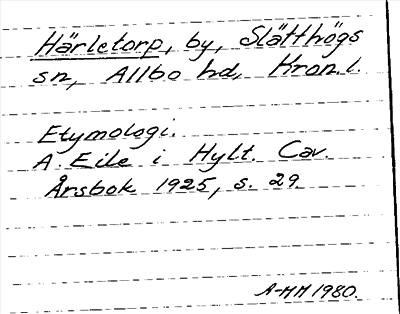 Härletorp, by, Slätthögs
sn, Allbo hd, Kron. l.
Etymologi.
A. Eile i Hylt. Cav.
Årsbok 1925, s. 29.
A-MM 1980.